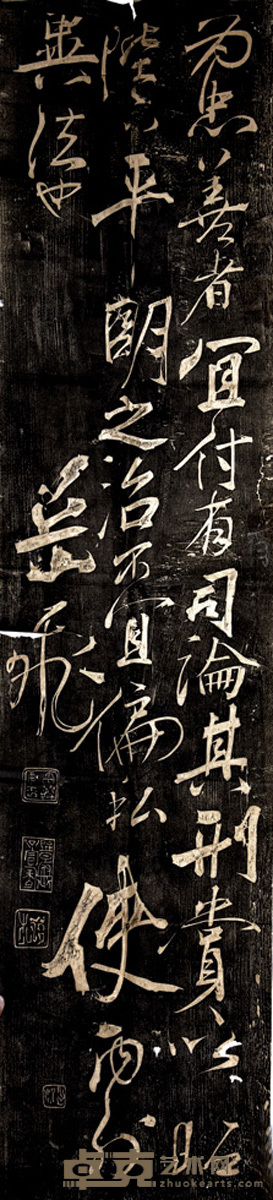 为忠善者宜付有司論其刑賞以昭
陛下平明之治不宜偏私使内外
異法也
岳飛
卓克艺术网
zhuokearts.com